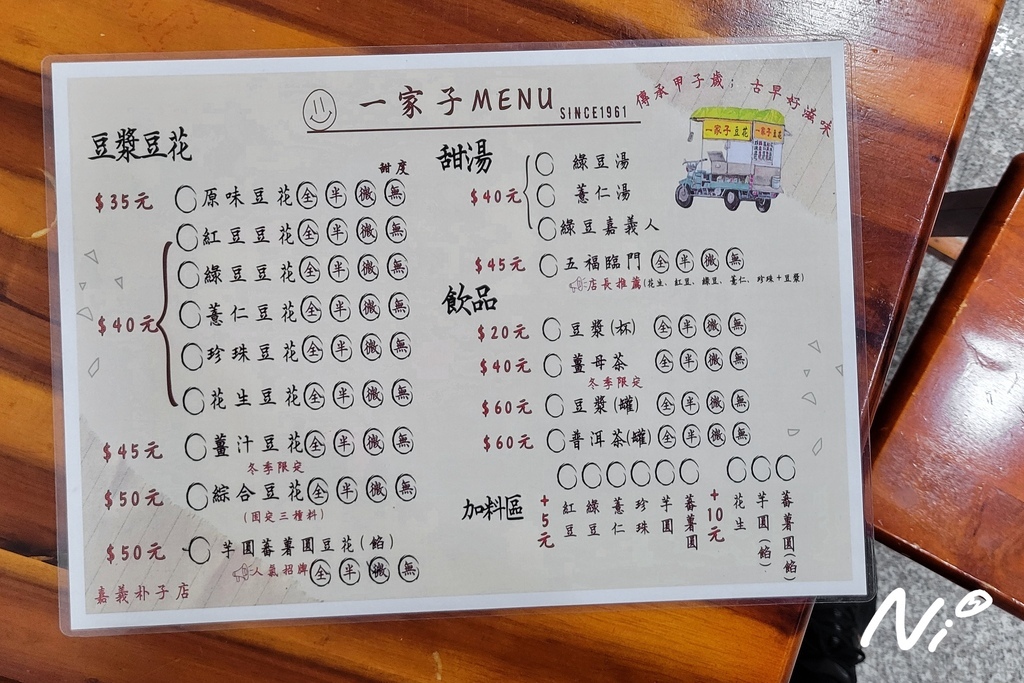 一家子MENU SINCE1961
傳承甲子歲；古早好滋味
一家子豆花 一家子豆花
豆漿豆花
甜度
$35元 原味豆花 全 半 微 無
$40元
紅豆豆花 全 半 微 無
綠豆豆花 全 半 微 無
薏仁豆花 全 半 微 無
珍珠豆花 全 半 微 無
花生豆花 全 半 微 無
$45元 薑汁豆花 全 半 微 無
冬季限定
$50元 綜合豆花 全 半 微 無
(固定三種料)
$50元 芋圓蕃薯圓豆花(餡)
人氣招牌 全 半 微 無
嘉義朴子店
甜湯
$40元
綠豆湯
薏仁湯
綠豆嘉義人
$45元 五福臨門 全 半 微 無
店長推薦(花生、紅豆、綠豆、薏仁、珍珠+豆漿)
飲品
$20元 豆漿(杯) 全 半 微 無
$40元 薑母茶 全 半 微 無
冬季限定
$60元 豆漿(罐) 全 半 微 無
$60元 普洱茶(罐) 全 半 微 無
加料區
+5元
紅豆
綠豆
薏仁
珍珠
芋圓
蕃薯圓
+10元
花生
芋圓(餡)
蕃薯圓(餡)
Ni